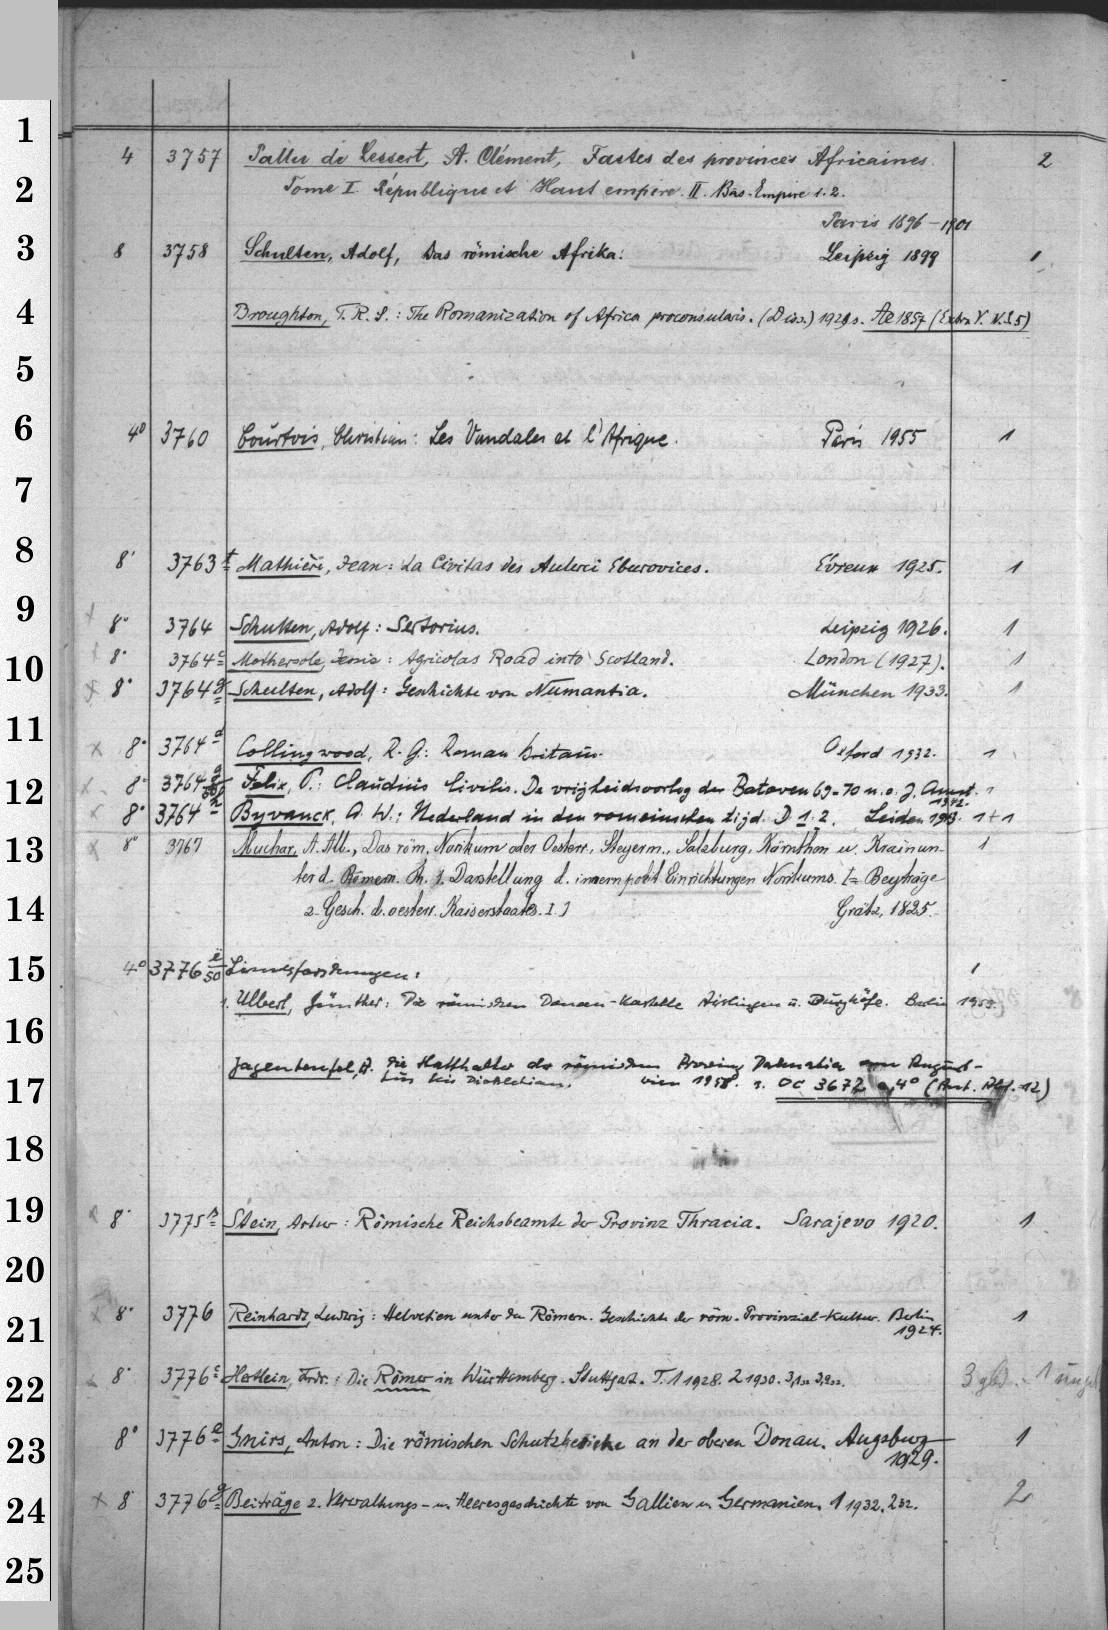 1
2
3
4
5
6
7
8
9
10
11
12
13
14
15
16
17
18
19
20
21
22
23
24
25
4 3757 Pallu de Lessert, A. Clément, Fastes des provinces Africaines. 2
Tome I. République et Haut empire. II. Bas-Empire 1.2.
Paris 1896-1901
8 3758 Schulten, Adolf, Das römische Afrika. Leipzig 1899 1
Broughton, T. R. S.: The Romanization of Africa proconsularis. (Diss.) 1929 s. Ae 1857 (Extra V. N. S 5)
4° 3760 Courtois, Christian: Les Vandales et l'Afrique. Paris 1955 1
8° 3763 f Mathière, Jean: La Civitas des Aulerci Eburovices. Evreux 1925. 1
8° 3764 Schulten, Adolf: Sertorius. Leipzig 1926. 1
8° 3764 c Mothersole, Jessie: Agricolas Road into Scotland. London (1927). 1
x 8° 3764 g Schulten, Adolf: Geschichte von Numantia. München 1933. 1
x 8° 3764 d Collingwood, R. G.: Roman Britain. Oxford 1932. 1
x 8° 3764 Felix, P.: Claudius Civilis. De vrijheidsoorlog der Bataven 69-70 n. o. J. Amst. 1
1942.
8° 3764 h Byvanck, A. W.: Nederland in den romeinschen tijd. D 1. 2. Leiden 1943. 1+1
x 8° 3767 Muchar, A. Alb., Das röm. Norikum oder Oesterr., Steyerm., Salzburg, Kärnthen u. Krain un- 1
ter d. Römern. Th. 1. Darstellung d. innern polit. Einrichtungen Norikums. [= Beyträge
z. Gesch. d. oesterr. Kaiserstaates. I] Grätz, 1825.
4° 3776 Limesforschungen: 1
1. Ulbert, Günther: Die römischen Donau-Kastelle Aislingen u. Burghöfe. Berlin 1959.
Jagenteufel, A. Die Statthalter der römischen Provinz Dalmatia von August-
tus bis Diokletian. Wien 1958. s. OC 3672 4° (Ant. Abt. 12)
8° 3775 n Stein, Artur: Römische Reichsbeamte der Provinz Thracia. Sarajevo 1920. 1
x 8° 3776 Reinhardt, Ludwig: Helvetien unter den Römern. Geschichte der röm. Provinzial-Kultur. Berlin 1
1924.
8° 3776 c Hertlein, Frdr.: Die Römer in Württemberg. Stuttgart. T. 1 1928. 2 1930. 3 gbd. 1
8° 3776 e Gnirs, Anton: Die römischen Schutzbezirke an der oberen Donau. Augsburg 1
1929.
x 8 3776 g Beiträge z. Verwaltungs- u. Heeresgeschichte von Gallien u. Germanien. 1 1932. 2 32. 2